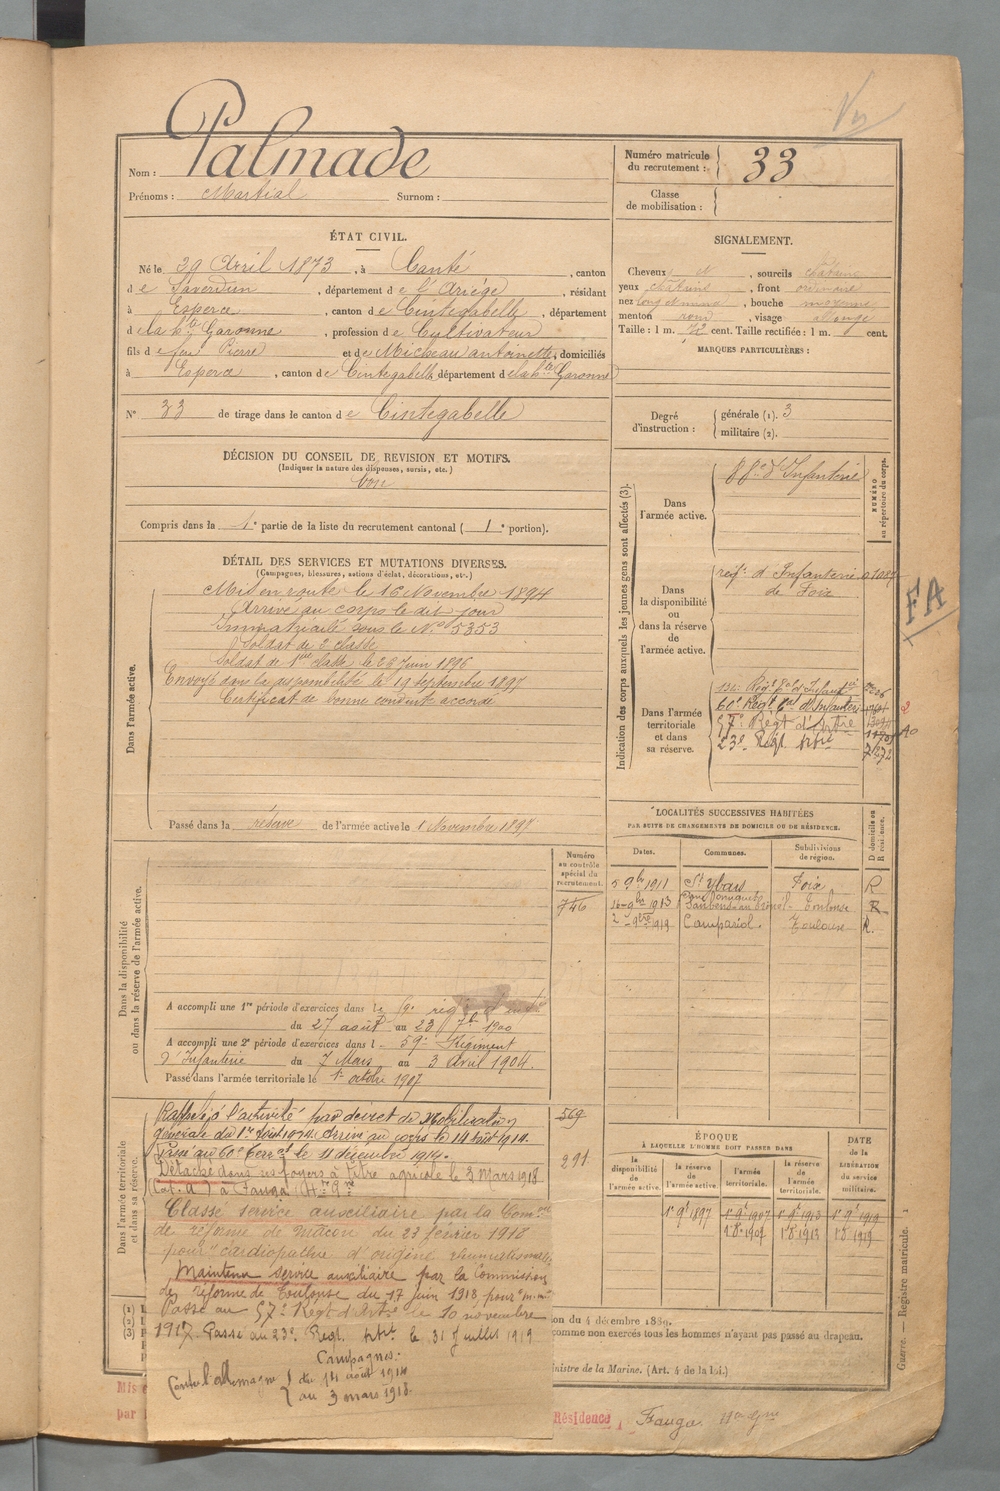 Nom : Palmade
Prénoms : Martial Surnom :
Numéro matricule du recrutement : 33
Classe de mobilisation :
ÉTAT CIVIL.
Né le 29 Avril 1873, à Canté, canton
de Saverdun, département de l'Ariège, résidant
à Esperce, canton de Cintegabelle, département
de la Hte Garonne, profession de Cultivateur
fils de feu Pierre et de Micheau antoinette, domiciliés
à Esperce, canton de Cintegabelle, département de la hte Garonne
N° 33 de tirage dans le canton de Cintegabelle
SIGNALEMENT.
Cheveux N, sourcils chatains
yeux chatains, front ordinaire
nez long, bouche moyenne
menton rond, visage allongé
Taille : 1 m. 72 cent. Taille rectifiée : 1 m. cent.
MARQUES PARTICULIÈRES :
Degré d'instruction : générale (1). 3
militaire (2).
DÉCISION DU CONSEIL DE REVISION ET MOTIFS.
(Indiquer la nature des dispenses, sursis, etc.)
bon
Compris dans la 1e partie de la liste du recrutement cantonal (1e portion).
DÉTAIL DES SERVICES ET MUTATIONS DIVERSES.
(Campagnes, blessures, actions d'éclat, décorations, etc.)
Dans l'armée active.
Mis en route le 16 Novembre 1894
Arrivé au corps le dit jour
Immatriculé sous le No 5353
Soldat de 2 classe
Soldat de 1ere classe le 26 Juin 1896
Envoyé dans la disponibilité le 19 septembre 1897
Certificat de bonne conduite accordé
Passé dans la réserve de l'armée active le 1 Novembre 1897
Indication des corps auxquels les jeunes gens sont affectés (3).
NUMÉRO au répertoire du corps.
Dans l'armée active.
88e d'Infanterie
Dans la disponibilité ou dans la réserve de l'armée active.
reigt d'Infanterie
de Foix
FA
Dans l'armée territoriale et dans sa réserve.
60e Regt
57e Regt d'Artrie
23e Regt Artrie
7272
LOCALITÉS SUCCESSIVES HABITÉES
PAR SUITE DE CHANGEMENTS DE DOMICILE OU DE RÉSIDENCE.
D domicile ou R résidence.
Dates. Communes. Subdivisions de région.
5 9bre 1911 St Ybars Foix R
16 9bre 1913 Toulouse R
2 9bre 1919 Campariol. Toulouse R.
Dans la disponibilité ou dans la réserve de l'armée active.
Numéro au contrôle spécial du recrutement.
746
A accompli une 1re période d'exercices dans le
du 27 août au 23 7b 1900
A accompli une 2e période d'exercices dans l 59e Régiment
d'Infanterie du 7 Mars au 3 Avril 1904.
Passé dans l'armée territoriale le 1er octobre 1907
Dans l'armée territoriale et dans sa réserve.
569
291
Rappelé à l'activité par décret de Mobilisation
générale du 1er Août 1914. Arrivé au corps le 14 août 1914.
Passé au 60e Terral le 11 décembre 1914.
Détaché dans ses foyers à titre agricole le 3 Mars 1918
(Cat. A) à Fauga Hte Gne
Classé service auxiliaire par la Comon
de réforme de Macon du 23 février 1918
pour "cardiopathie d'origine rhumatismale"
Maintenu service auxiliaire par la Commission
de réforme de Toulouse du 17 juin 1918 pour "m.m"
Passé au 57e Regt d'Artie le 10 novembre
1917. Passé au 23e Regt. Artie le 31 Juillet 1919
Campagnes :
Contre l'allemagne du 14 août 1914
au 3 mars 1918.
ÉPOQUE
À LAQUELLE L'HOMME DOIT PASSER DANS
la disponibilité de l'armée active.
la réserve de l'armée active.
l'armée territoriale.
la réserve de l'armée territoriale.
DATE de la LIBÉRATION du service militaire.
1er 9e 1897 1er 9e 1907 1er 9e 1913 1er 9e 1919
1er 8e 1907 1er 8 1913 1er 8 1919
on du 4 décembre 1889.
comme non exercés tous les hommes n'ayant pas passé au drapeau.
nistre de la Marine. (Art. 4 de la loi.)
Guerre. — Registre matricule. 1
Mis e
par
Résidence Fauga